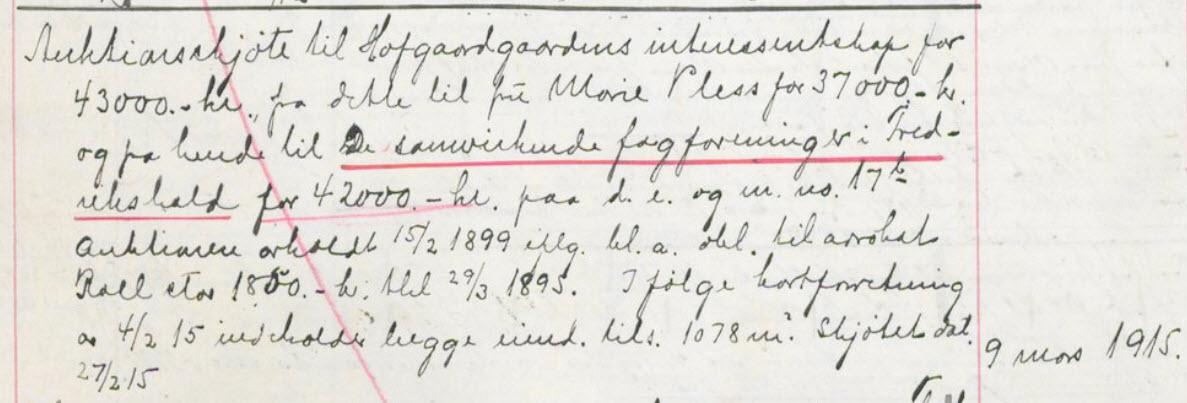 Auktionsskjøte til Hofgaardgaardens interessentskap for
43000.- kr., fra dette til frk Marie Pless for 37000.- kr.
og fra hende til De samvirkende fagforeninger i Fred-
rikshald for 42000.- kr. paa d. e. og m. no. 17b
Auktionen avholdt 15/2 1899 iflg. bl. a. obl. til advokat
Roll stor 1850.- kr. tld 29/3 1895. I følge kartforretning
av 4/2 15 indeholder begge eiend. tils. 1078 m². Skjøtet dat.
27/2 15
9 mars 1915.